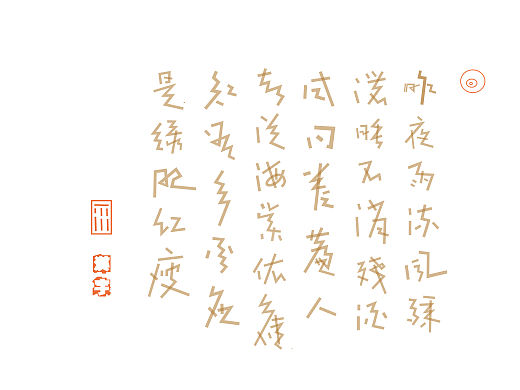 昨夜雨疏风骤
浓睡不消残酒
试问卷帘人
却道海棠依旧
知否知否应
是绿肥红瘦